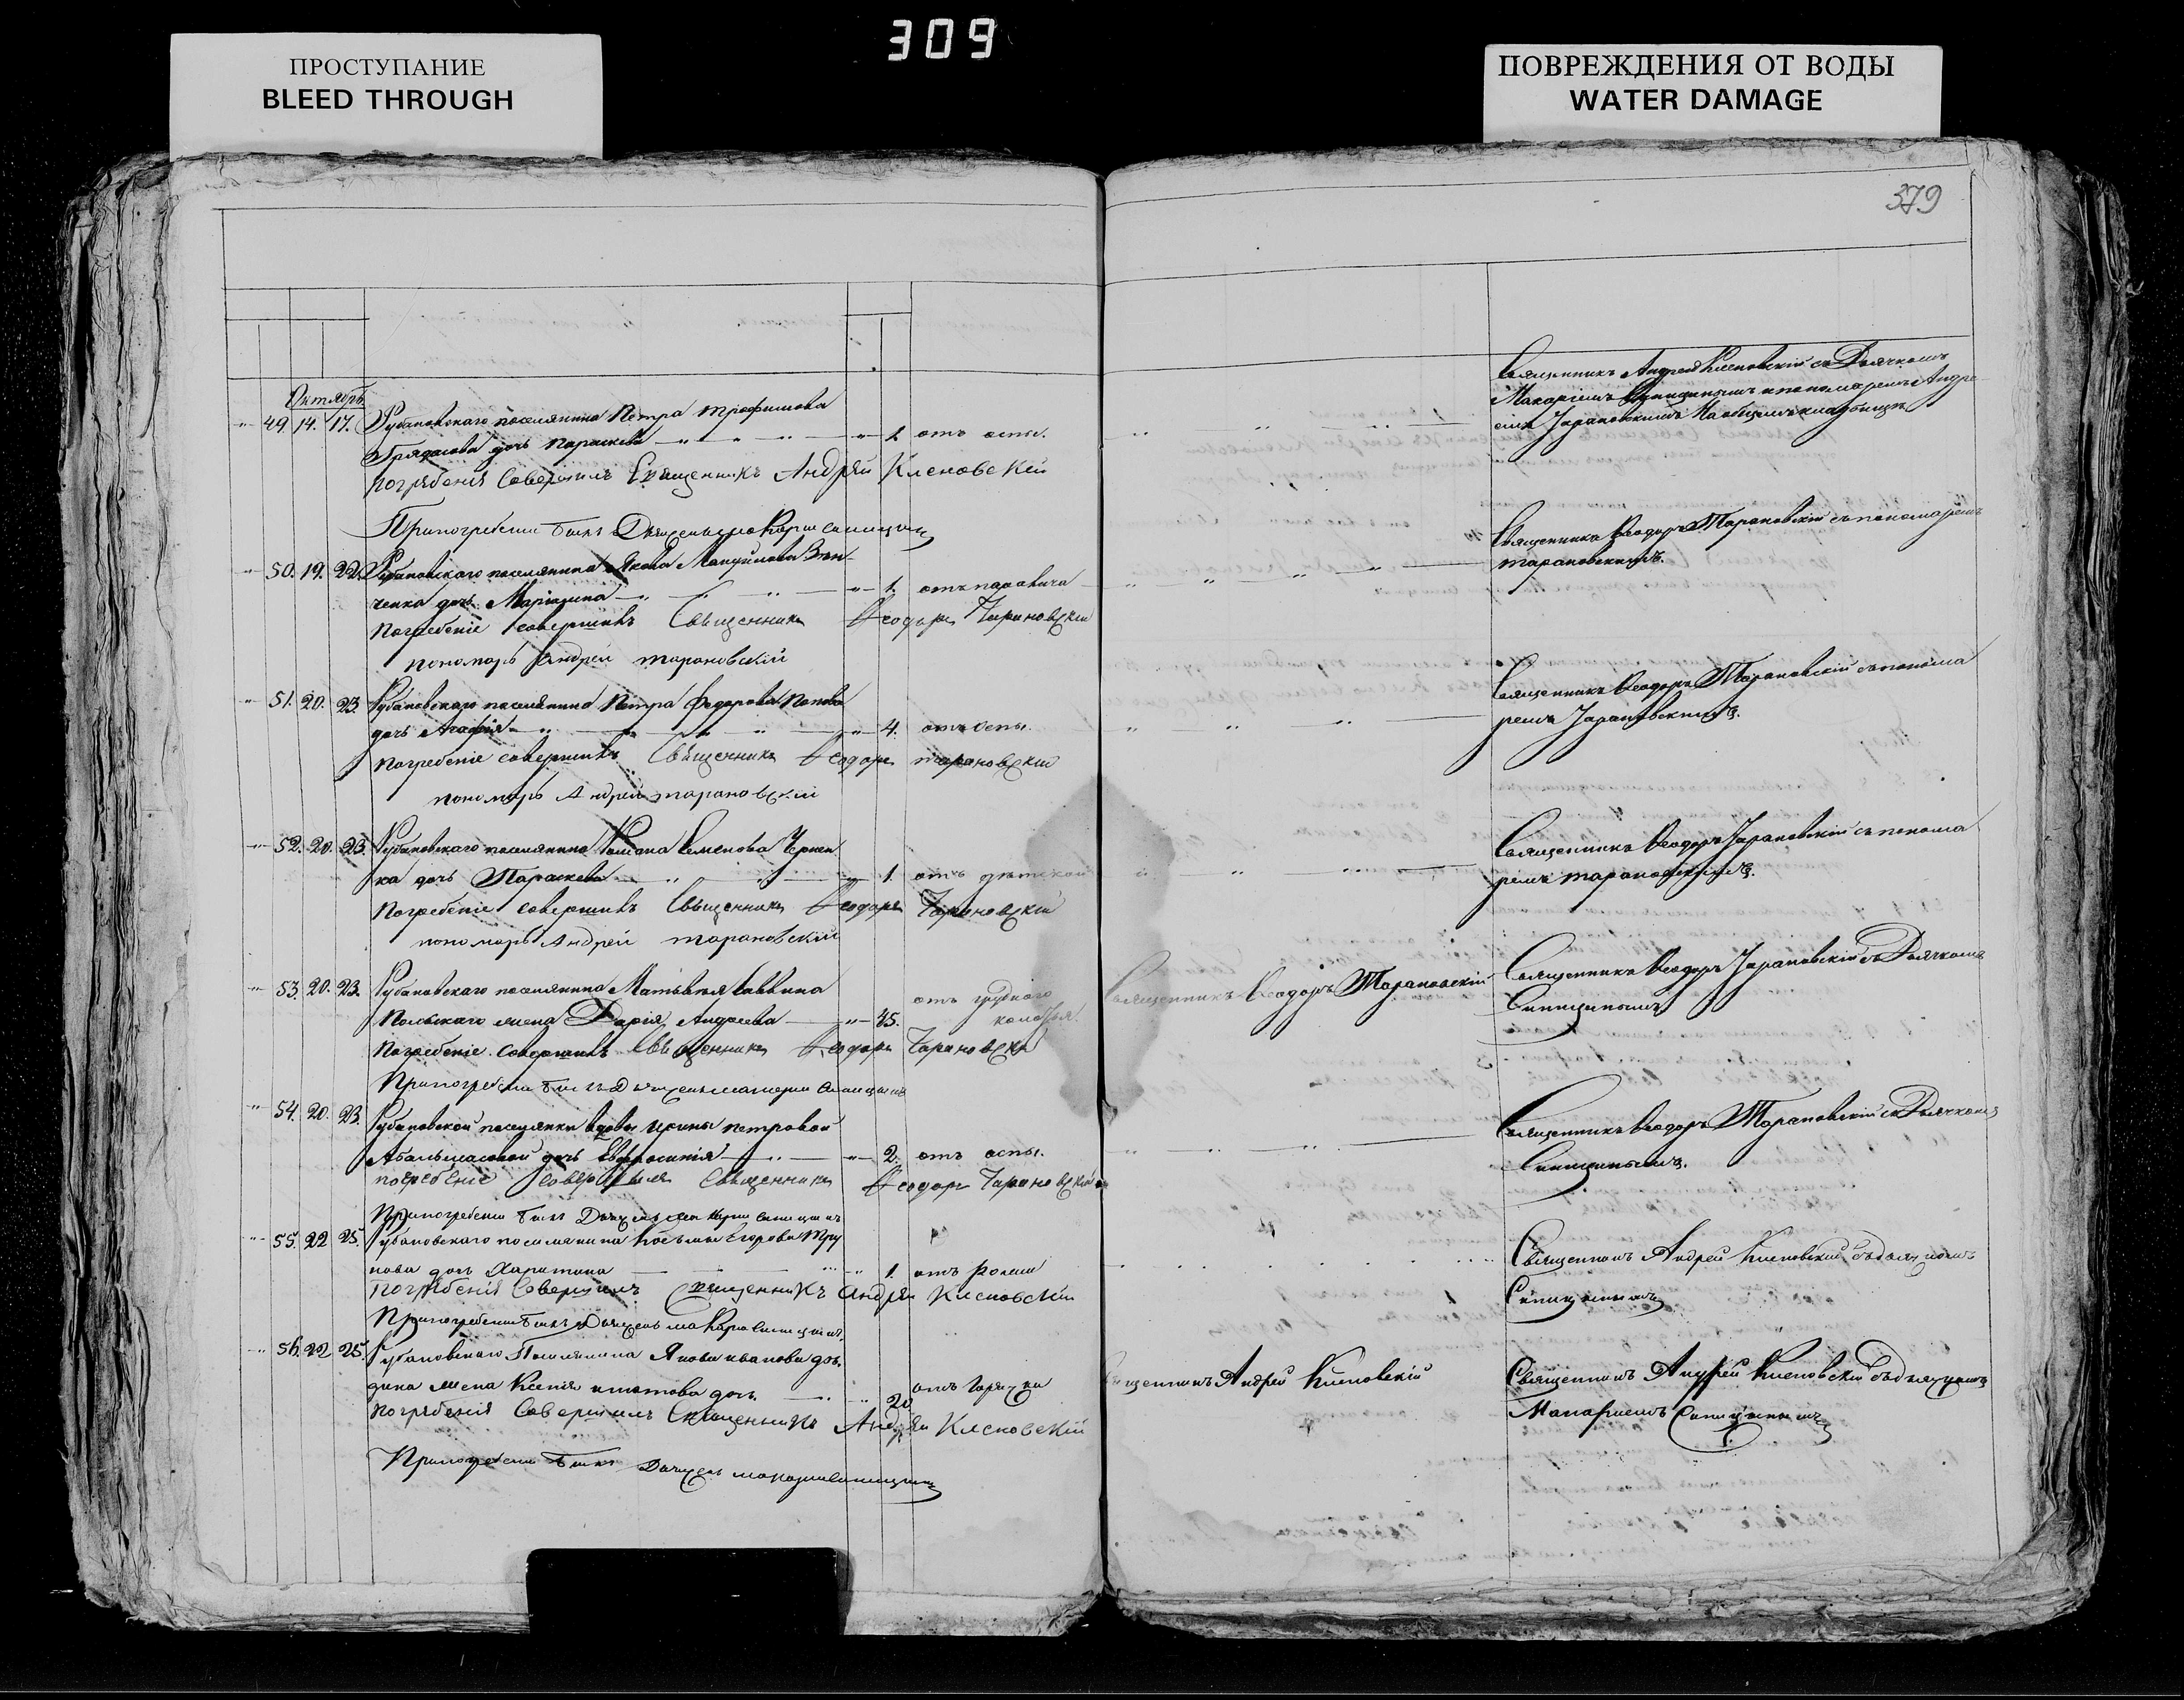 309
ПРОСТУПАНИЕ
BLEED THROUGH
ПОВРЕЖДЕНИЯ ОТ ВОДЫ
WATER DAMAGE
379
Октябрь
49. 14. 17. Рубановскаго поселянина Петра Трофимова
дочь Параскева 1. отъ оспы.
погрѣбенія Совершилъ Священникъ Андрѣй Кленовскій
При погребеніи былъ Дьячекъ Макарій Синицынъ
Священникъ Андрей Кленовскій съ Дьячкомъ
Макаріемъ Синицынымъ и пономаремъ Андре
емъ Тарановскимъ На общемъ кладбищѣ
50. 19. 22. Рубановскаго поселянина Якова Мануйлова Зѣн
ченка дочь 1.
Погребеніе совершилъ Священникъ Ѳеодоръ Тарановскій
пономарь Андрей Тарановскій
Священникъ Ѳеодоръ Тарановскій съ пономаремъ
Тарановскимъ.
51. 20. 23. Рубановскаго поселянина Петра Федорова Попова
дочь Агафія 4. отъ оспы.
Погребеніе совершилъ Священникъ Ѳеодоръ Тарановскій
пономарь Андрей Тарановскій
Священникъ Ѳеодоръ Тарановскій съ понома
ремъ Тарановскимъ.
52. 20. 23. Рубановскаго поселянина Романа Семенова Чернен
ка дочь Параскева 1. отъ дѣтской
Погребеніе совершилъ Священникъ Ѳеодоръ Тарановскій
пономарь Андрей Тарановскій
Священникъ Ѳеодоръ Тарановскій съ понома
ремъ Тарановскимъ.
53. 20. 23. Рубановскаго поселянина Матвѣя Саввина
жена Дарія Андреева 35. отъ груднаго
колотья.
Погребеніе совершилъ Священникъ Ѳеодоръ Тарановскій
При погребеніи былъ Дьячекъ Макарій Синицынъ
Священникъ Ѳеодоръ Тарановскій
Священникъ Ѳеодоръ Тарановскій съ Дьячкомъ
Синицынымъ
54. 20. 23. Рубановской поселянки вдовы Ирины Петровой
дочь Евфросинія 2. отъ оспы.
погребеніе совершилъ Священникъ Ѳеодоръ Тарановскій
При погребеніи былъ Дьячекъ Макарій Синицынъ
Священникъ Ѳеодоръ Тарановскій съ Дьячкомъ
Синицынымъ.
55. 22 25. Рубановскаго поселянина Косьмы Егорова Тру
нова дочь Харитина 1. отъ
Погрѣбенія Совершилъ Священникъ Андрѣй Кленовскій
При погребеніи былъ Дьячекъ Макарій Синицынъ
Священникъ Андрей Кленовскій съ дьячкомъ
Синицынымъ
56. 22 25. Рубановскаго Поселянина Якова Иванова
жена Ксенія дочь 20 отъ горячки
Погрѣбенія Совершилъ Священникъ Андрѣй Кленовскій
При погребеніи былъ Дьячекъ Макарій Синицынъ
Священникъ Андрей Кленовскій
Священникъ Андрей Кленовскій съ дьячкомъ
Макаріемъ Синицынымъ